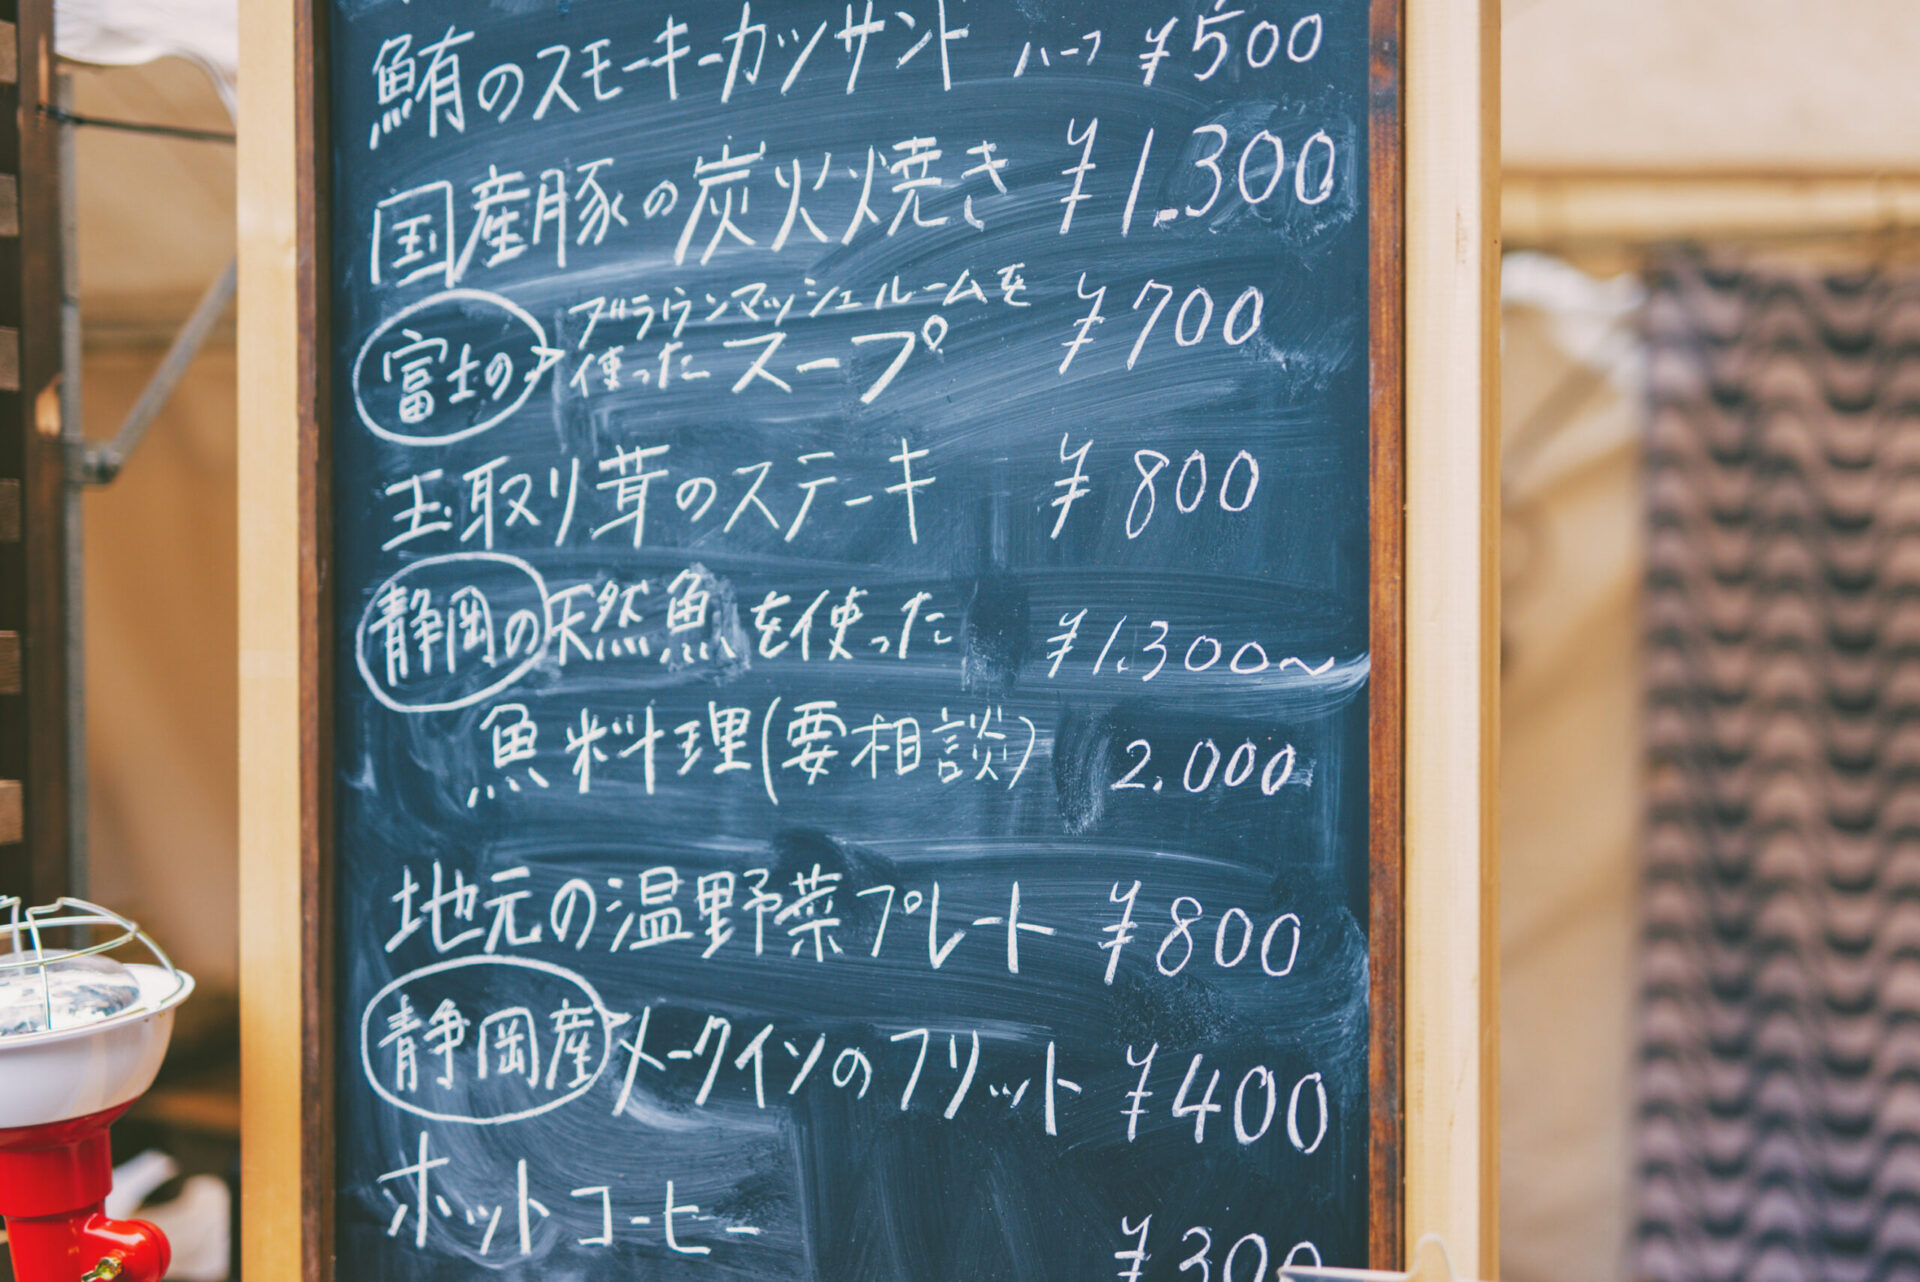 鮪のスモーキーカツサンド ハーフ ¥500
国産豚の炭火焼き ¥1.300
富士の ブラウンマッシュルームを
使った スープ ¥700
玉取り茸のステーキ ¥800
静岡の天然魚を使った ¥1.300〜
魚料理(要相談) 2.000
地元の温野菜プレート ¥800
静岡産 メークインのフリット ¥400
ホットコーヒー ¥300